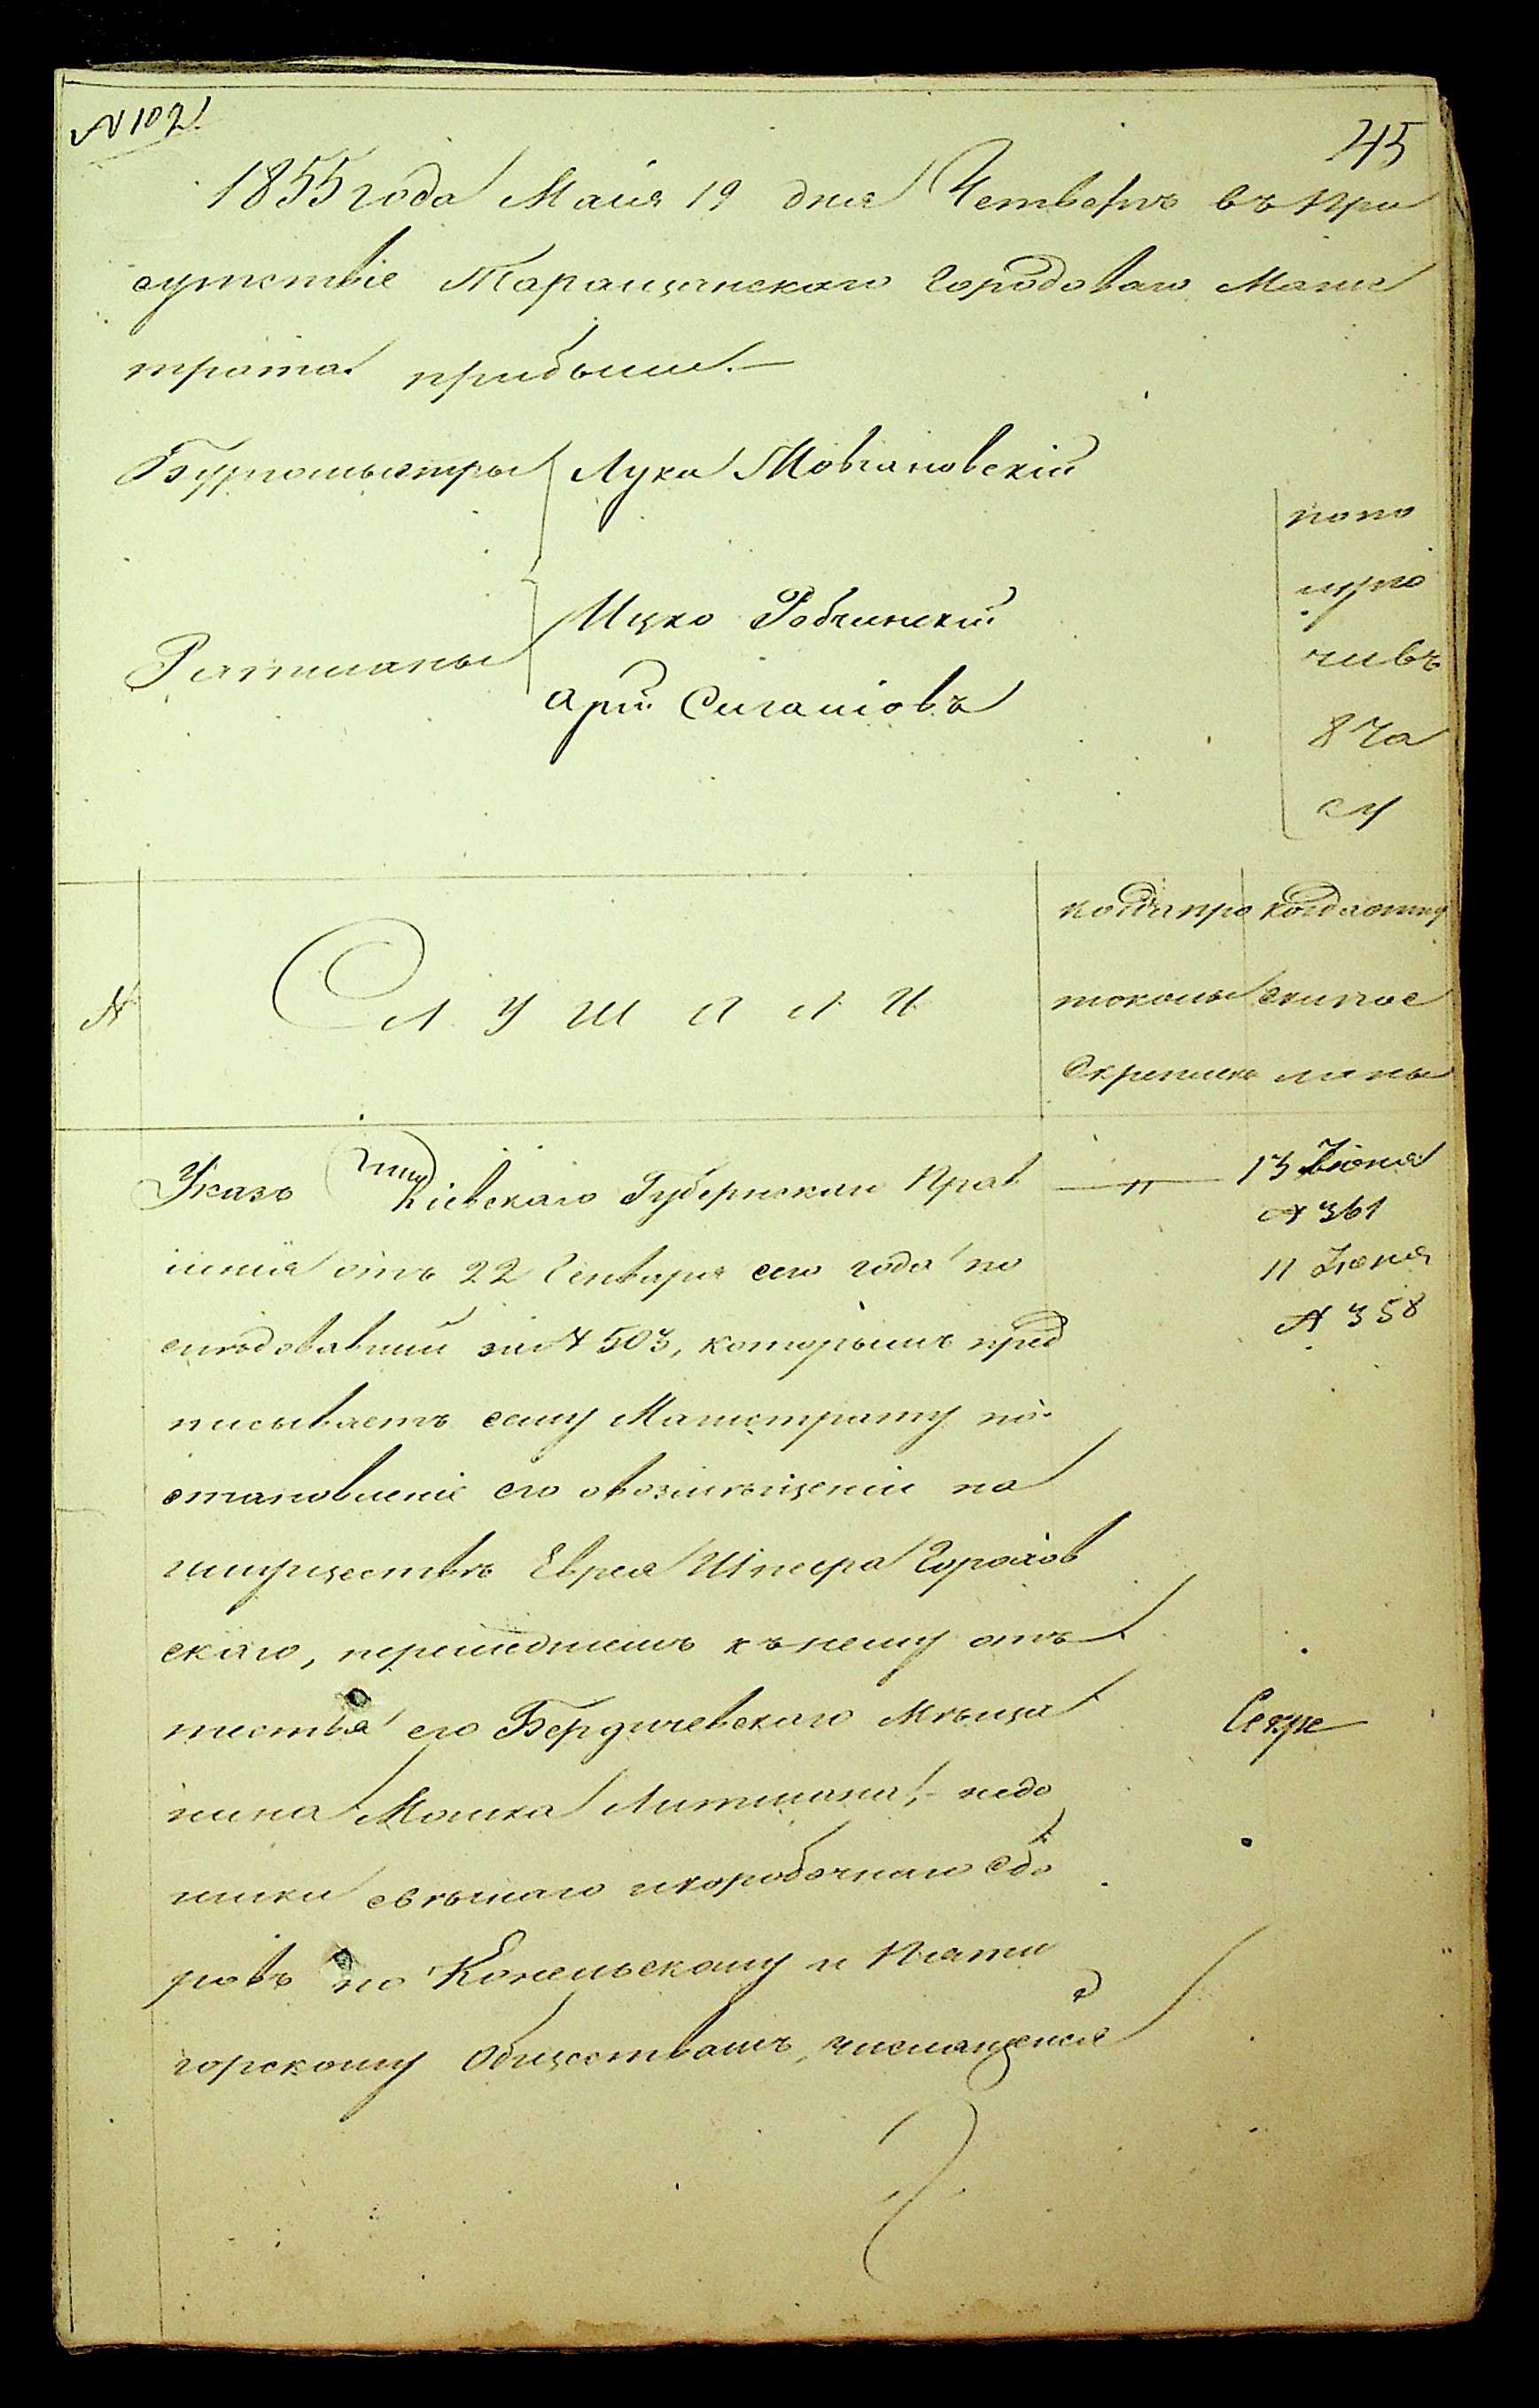 № 102.
45
1855 года Маія 19 дня Четвергъ въ при
сутствіе Таращанскаго Городоваго Магис
трата прибыли.—
Бургомыстры Лука
Ратманы
Ицко
попо
лудно
чивъ
8 ча
су
№
Слушали
когда про
токолы
Скреплены
когда отпу
ски пос
ланы
Указъ Кіевскаго Губернскаго Прав
ленія отъ 22 Генваря сего года по
слѣдовавшій за № 503, которымъ пред
писываетъ сему Магистрату по
становленіе его овозмѣщеніи на
имуществѣ Еврея Шпера Горохов
скаго, перешедшемъ къ нему отъ
тестя его Бердичевскаго Мѣща
нина Мошка Литмана, недо
имки свѣчнаго икоробочнаго Сбо
ровъ по Конельскому и Пяти
горскому Обществамъ, числящейся
— „ —
13 Іюня
№ 361
11 Іюня
№ 358
Секре